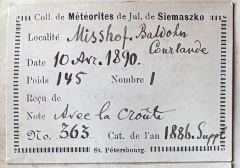 Coll. de Météorites de Jul. de Siemaszko
Localité Misshof. Baldohn
Courlande
Date 10 Avr. 1890.
Poids 145 Nombre 1
Reçu de
Note Avec la croûte
No. 363. Cat. de l'an 1886. Suppl
St. Pétersbourg.